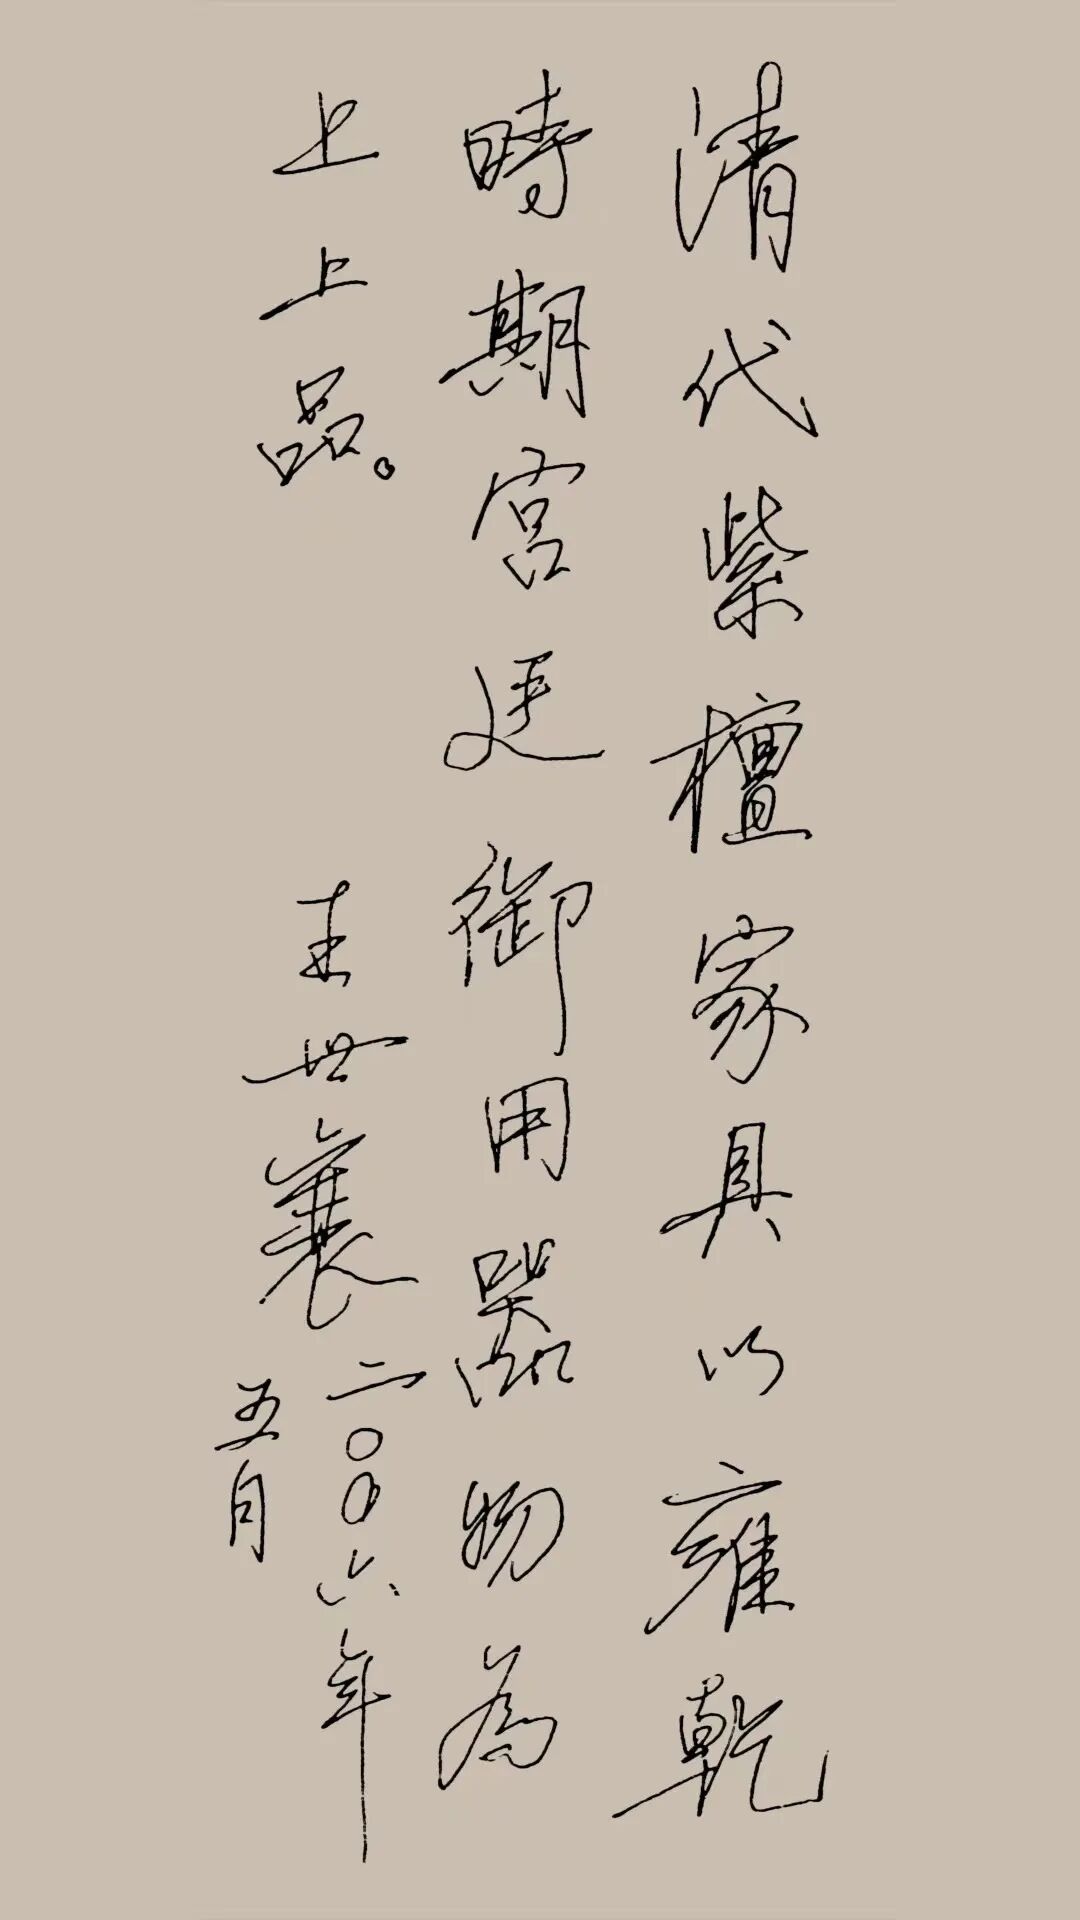 清代紫檀家具以雍乾
時期宮廷御用器物為
上上品。
王世襄
二〇〇六年
五月